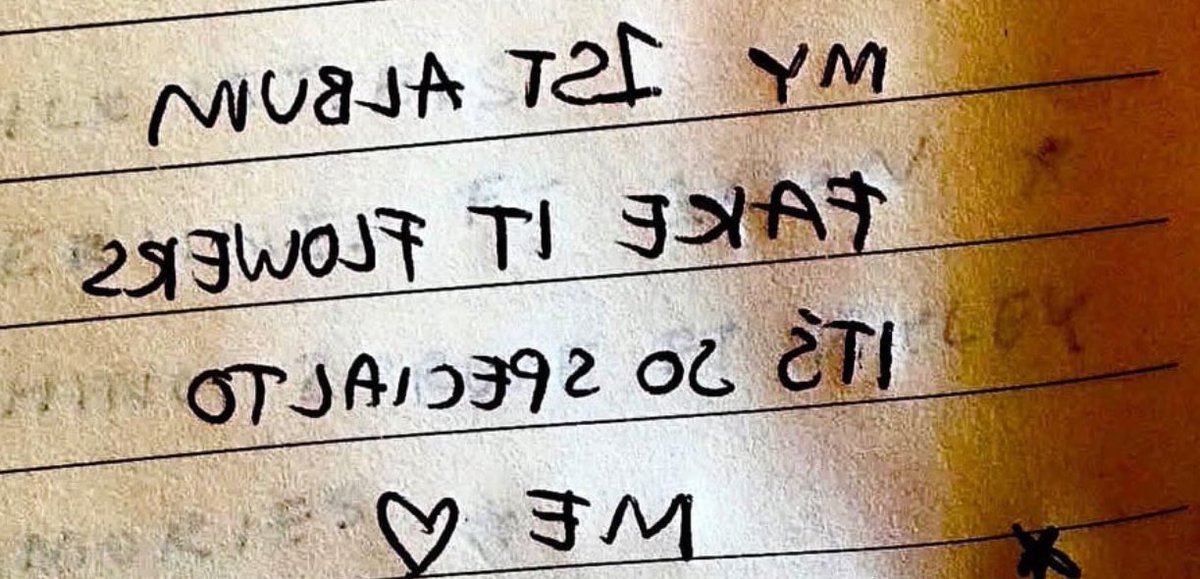 MY 1ST ALBUM
FAKE IT FLOWERS
IT'S SO SPECIAL TO
ME ♡